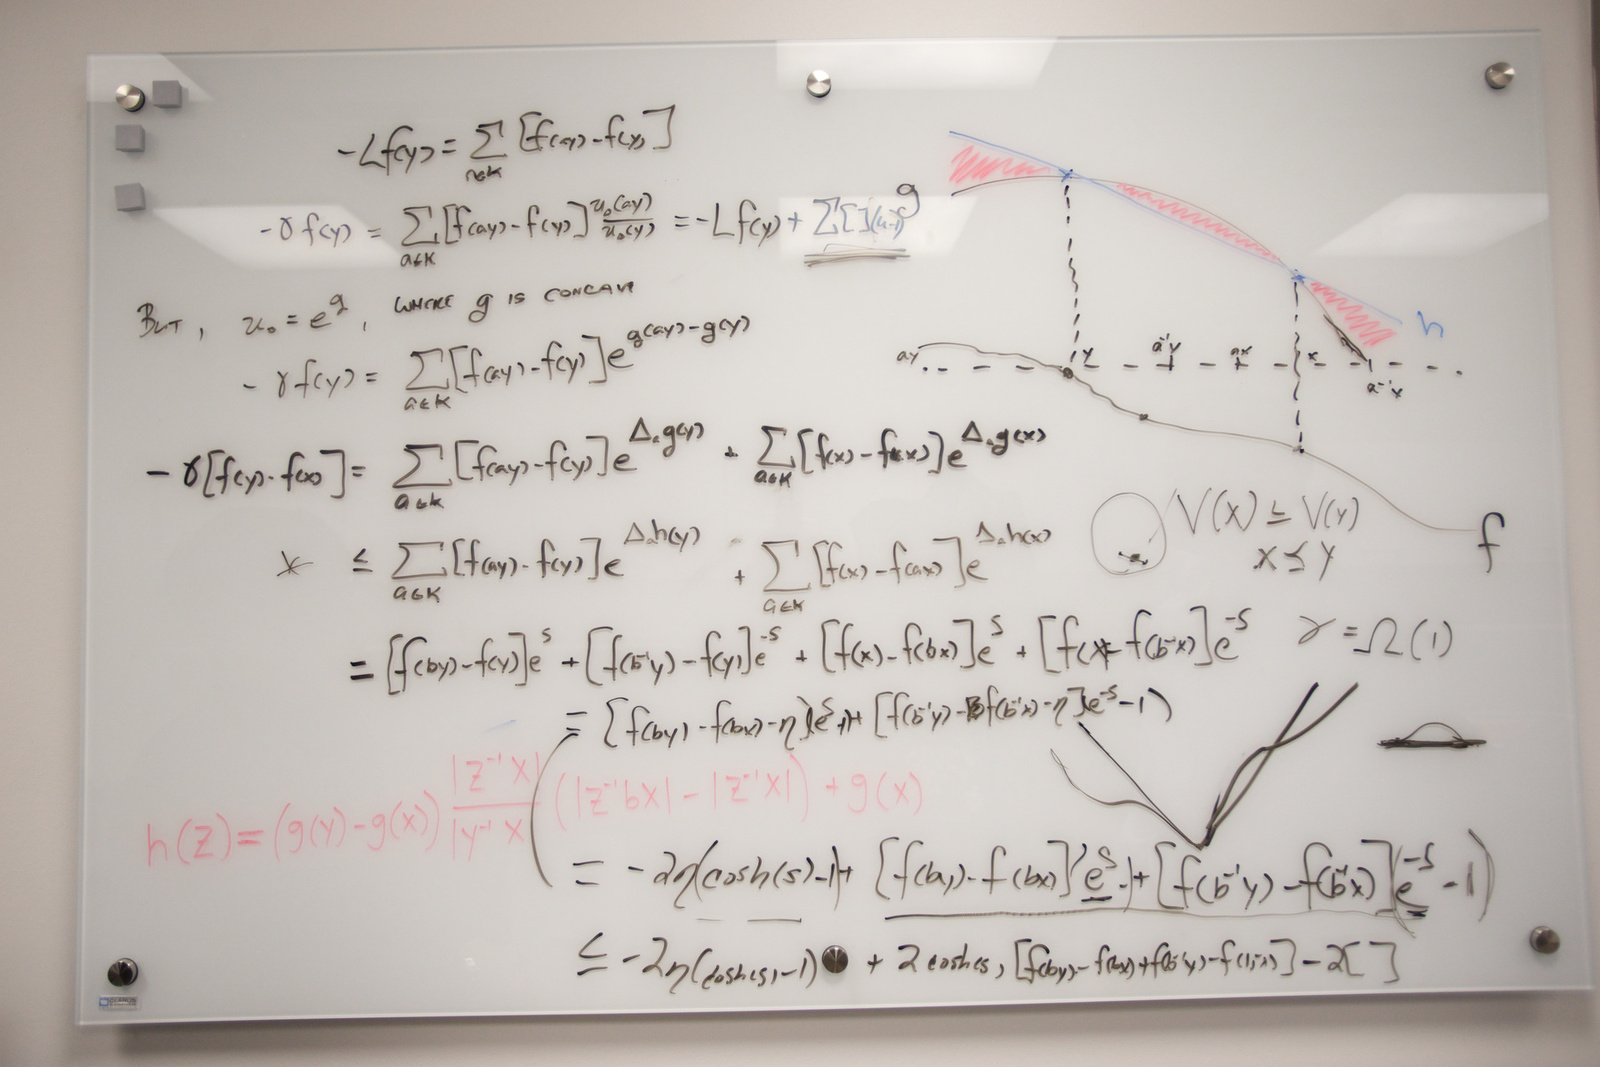 -Lf(y) = Σ_{a∈K} [f(ay) - f(y)]
-γf(y) = Σ_{a∈K} [f(ay) - f(y)] u₀(ay)/u₀(y) = -Lf(y) + Σ[ ](
g
BUT, u₀ = e^g, WHERE g IS CONCAVE
-γf(y) = Σ_{a∈K} [f(ay) - f(y)] e^{g(ay) - g(y)}
-γ[f(y) - f(x)] = Σ_{a∈K} [f(ay) - f(y)] e^{Δₐg(y)} + Σ_{a∈K} [f(x) - f(ax)] e^{Δₐg(x)}
* ≤ Σ_{a∈K} [f(ay) - f(y)] e^{Δₐh(y)} + Σ_{a∈K} [f(x) - f(ax)] e^{Δₐh(x)}
= [f(by) - f(y)]e^s + [f(b⁻¹y) - f(y)]e^{-s} + [f(x) - f(bx)]e^s + [f(x) - f(b⁻¹x)]e^{-s}
= [f(by) - f(bx) - η](e^s + [f(b⁻¹y) - f(b⁻¹x) - η](e^{-s} - 1)
h(z) = (g(y) - g(x)) |z⁻¹x| / |y⁻¹x| (|z⁻¹bx| - |z⁻¹x|) + g(x)
= -2η(cosh(s) - 1) + [f(by) - f(bx)](e^s - 1) + [f(b⁻¹y) - f(b⁻¹x)](e^{-s} - 1)
≤ -2η(cosh(s) - 1) + 2 cosh(s) [f(by) - f(bx) + f(b⁻¹y) - f(b⁻¹x)] - 2[ ]
h
ay y a⁻¹y ax x a⁻¹x
f
V(x) ≤ V(y)
x ≤ y
γ = Ω(1)